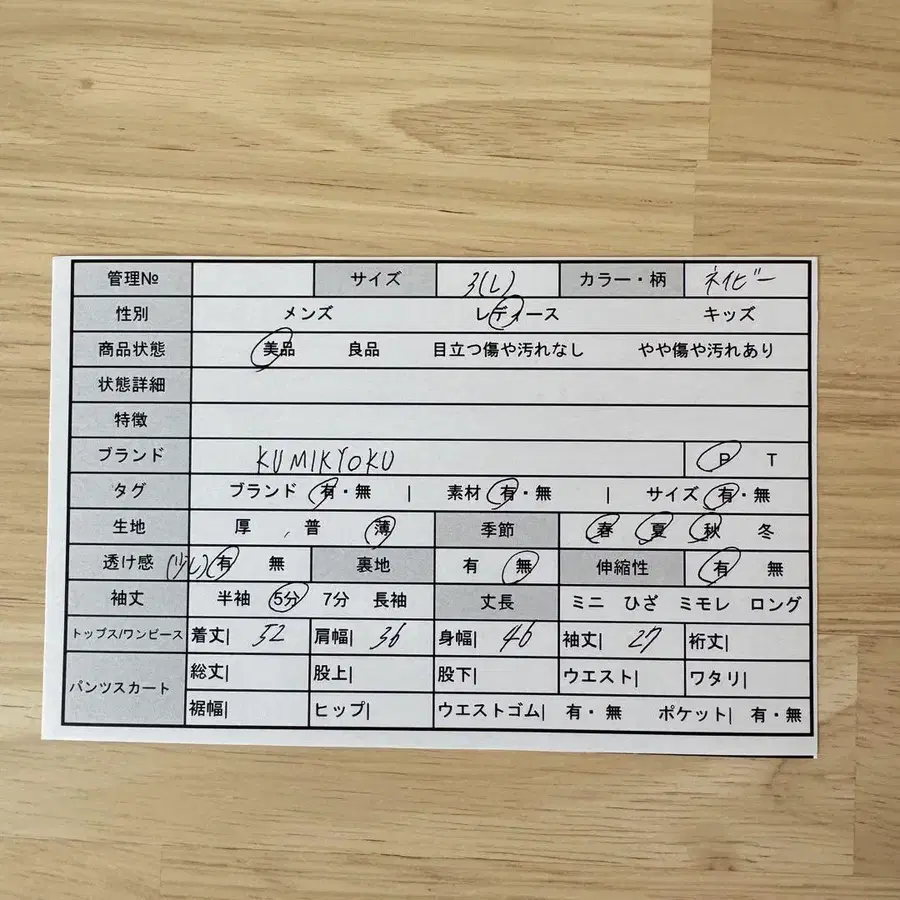 管理№ サイズ 3(L) カラー・柄 ネイビー
性別 メンズ レディース キッズ
商品状態 美品 良品 目立つ傷や汚れなし やや傷や汚れあり
状態詳細
特徴
ブランド KUMIKYOKU P T
タグ ブランド 有・無 | 素材 有・無 | サイズ 有・無
生地 厚 普 薄 季節 春 夏 秋 冬
透け感 (少し) 有 無 裏地 有 無 伸縮性 有 無
袖丈 半袖 5分 7分 長袖 丈長 ミニ ひざ ミモレ ロング
トップス/ワンピース 着丈| 52 肩幅| 36 身幅| 46 袖丈| 27 裄丈|
パンツスカート 総丈| 股上| 股下| ウエスト| ワタリ|
裾幅| ヒップ| ウエストゴム| 有・無 ポケット| 有・無